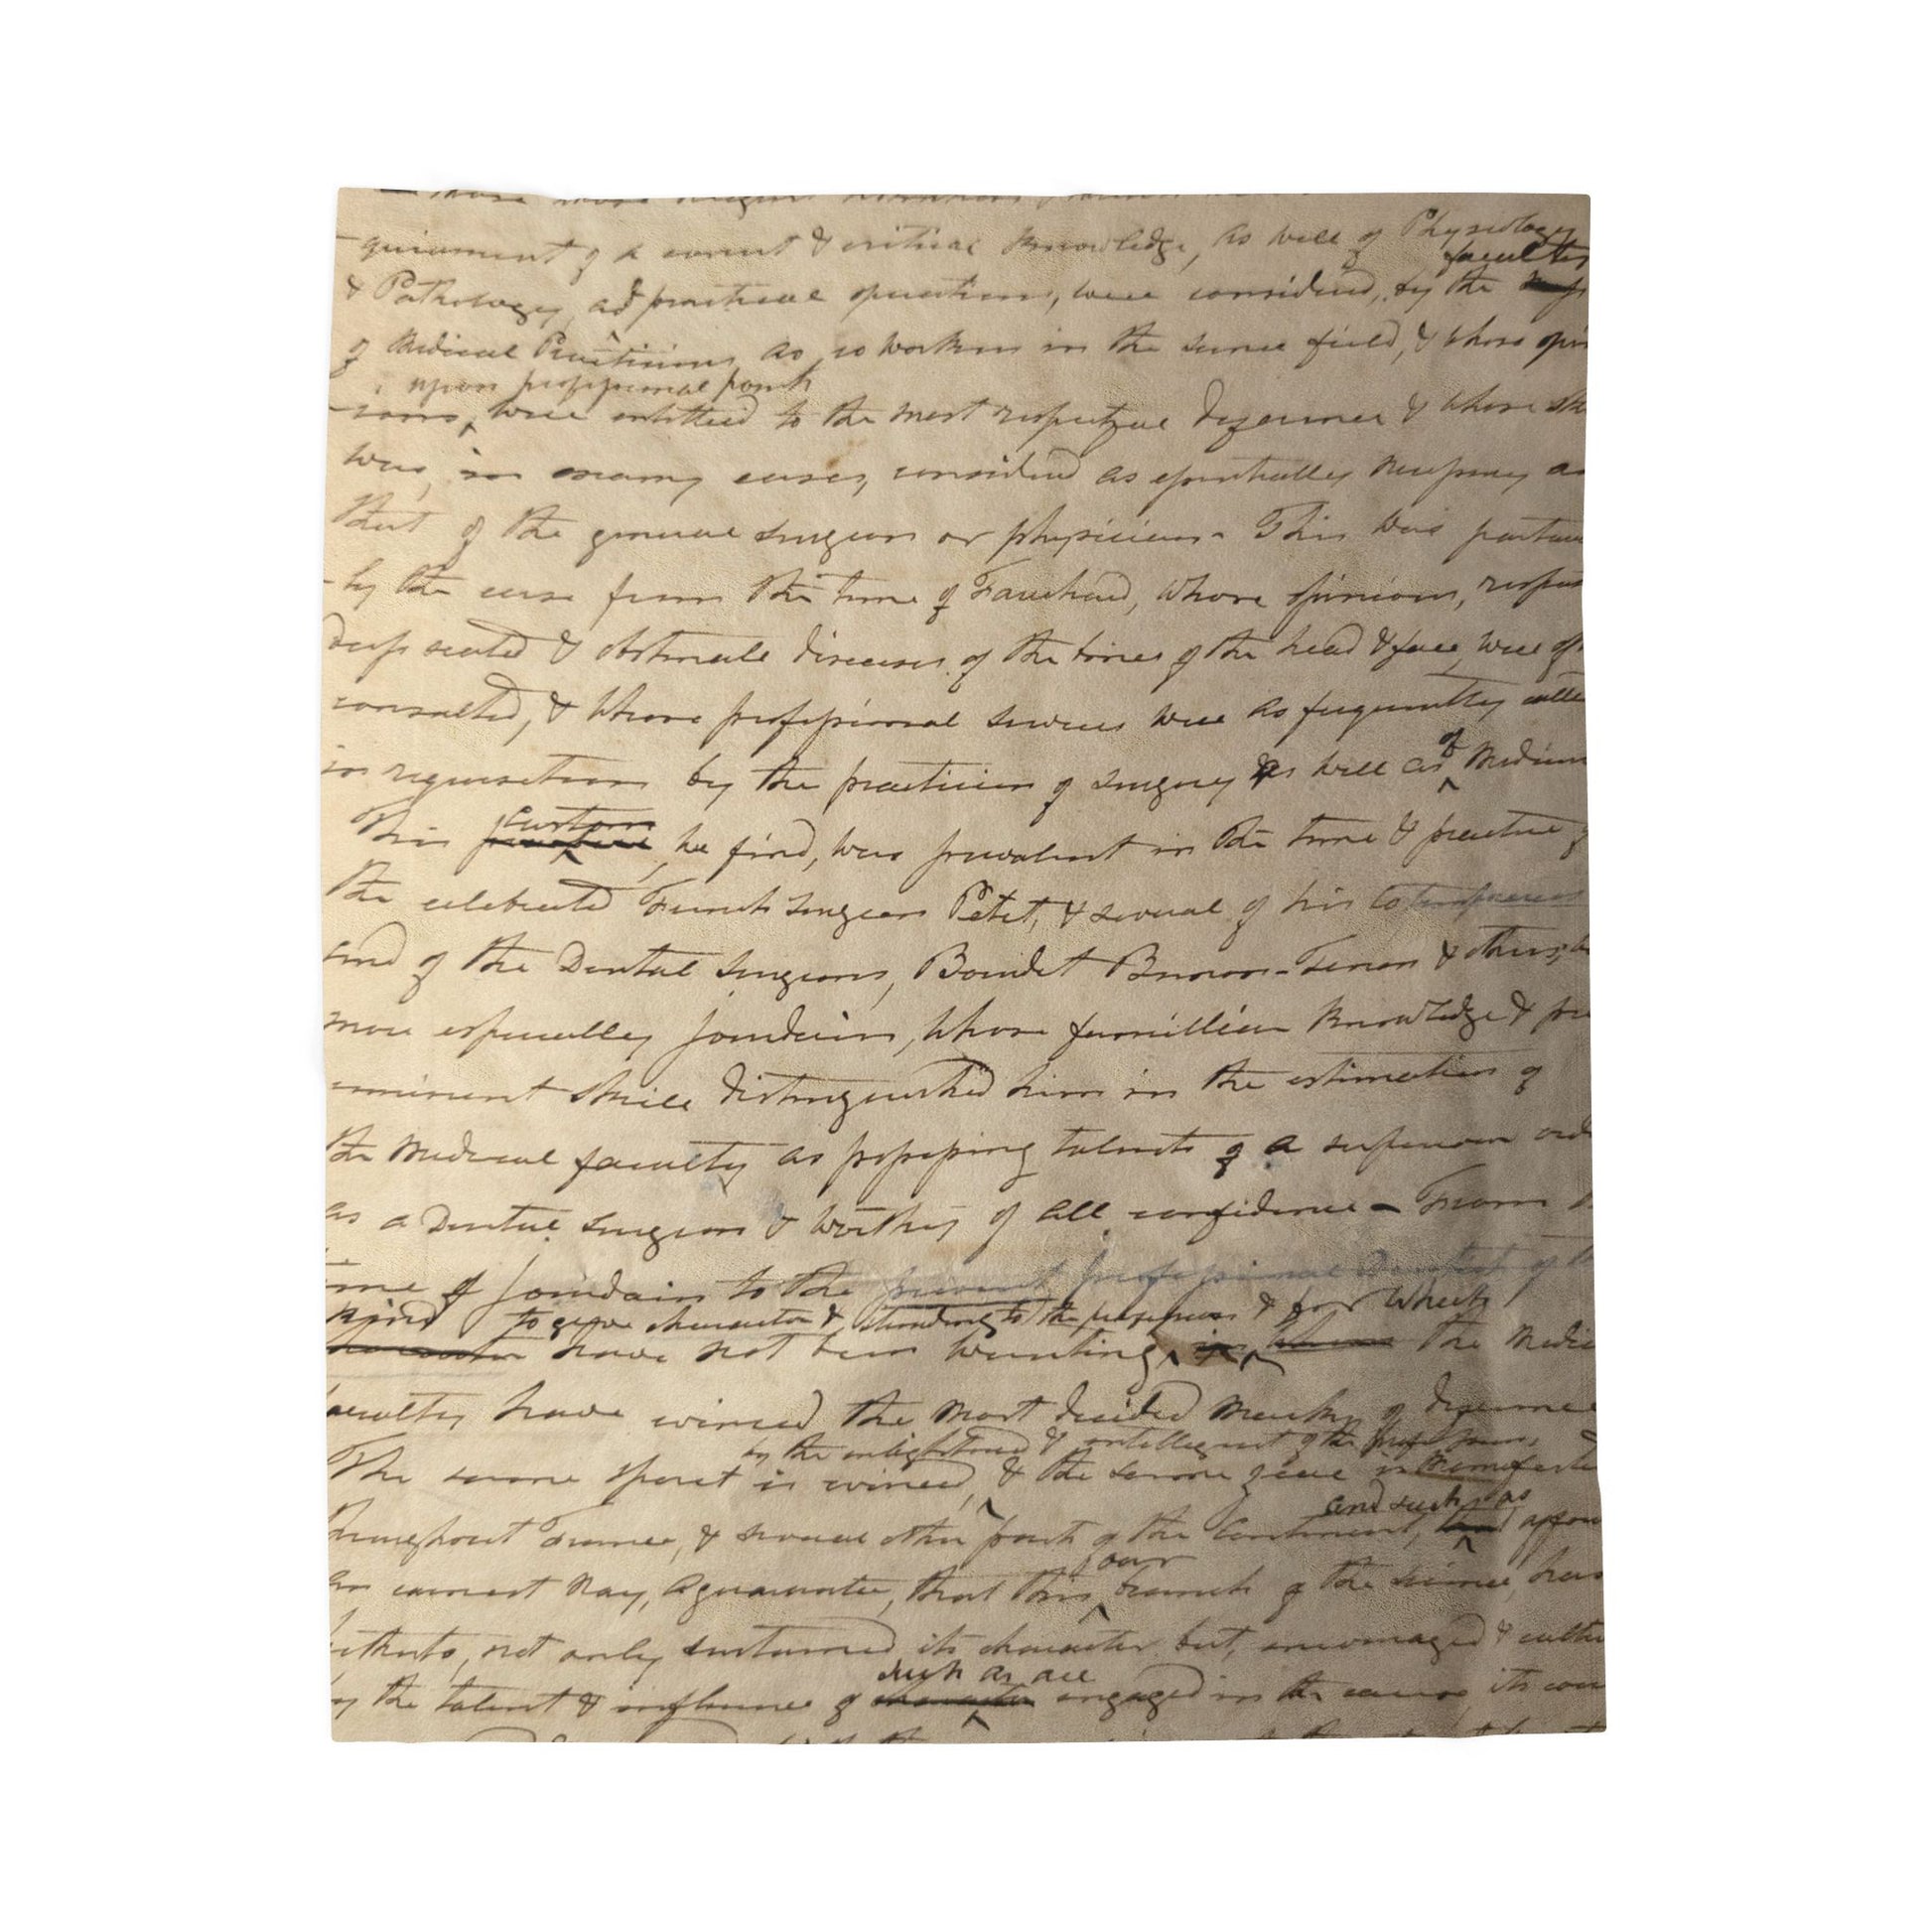 -quirement of a correct & critical knowledge, as well of Physiology
faculty
& Pathology, as practical operations, were considered, by the
of Medical Practitions as co workers in the same field, & whose opin
upon professional points
-ions, were entitled to the most respectful deference & whose ski
was, in many cases, considered as essentially necessary as
that of the general surgeon or physician - This was particu
-ly the case from the time of Fauchard, whose opinions, respec
deep seated & obstinate diseases of the bones of the head & face, were of
consulted, & whose professional services were as frequently calle
in requisition by the practition of surgery as well as of Medicin
custom
This, we find, was prevalent in the time & practice of
the celebrated French surgeon Petit, & several of his cotemporari
and of the Dental surgeons, Bourdet Bunon - Tenon & others, b
more especially Jourdain, whose familliar knowledge & pre
-eminent skill distinguished him in the estimation of
the Medical faculty as possessing talents of a superior ord
as a Dental surgeon & worthy of all confidence - From t
time of Jourdain to the present professional Dentist of t
kind to give character & standing to the profession & for which
have not been wanting, the Medic
faculty have evinced the most decided marks of deference
by the enlightened & intelligent of the profession,
The same spirit is evinced, & the same zeal is manifeste
and such as
throughout France, & several other parts of the Continent, affor
our
an earnest nay, a guarantee, that this branch of the science, has
hitherto, not only sustained its character but, encouraged & culti
such as are
by the talent & influence of engaged in the cause its cou